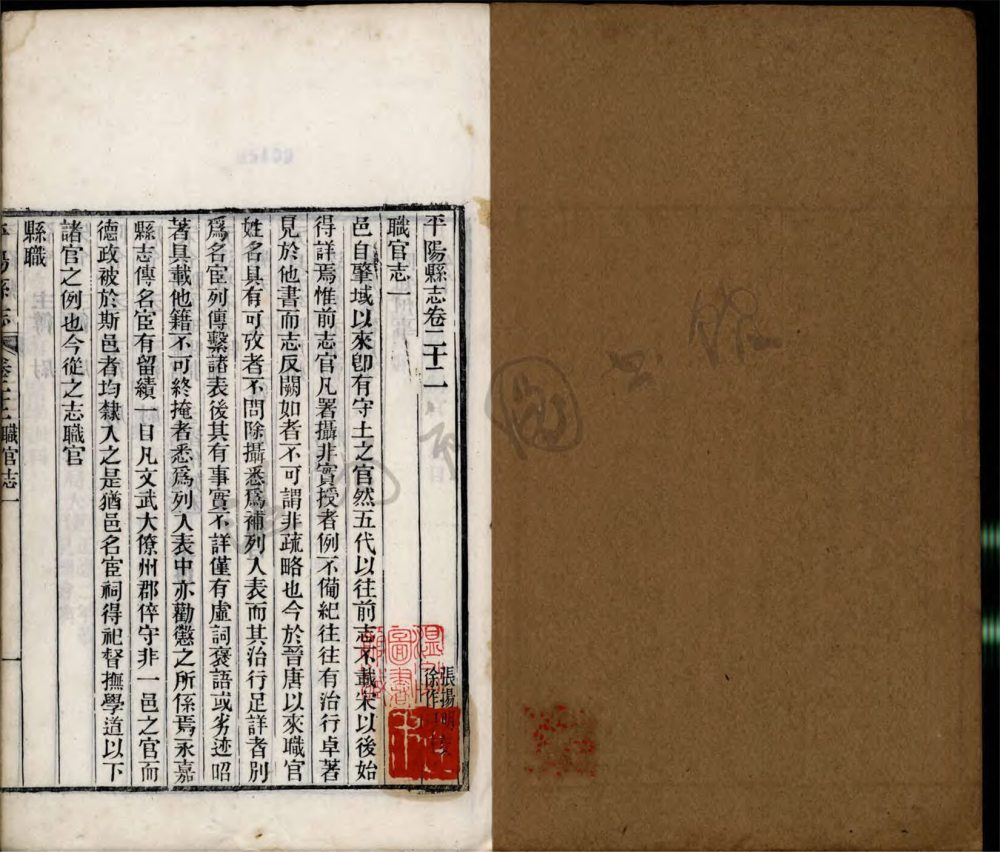 平陽縣志卷二十二
張揚
徐作
職官志一
邑自肇域以來卽有守土之官然五代以往前志不載宋以後始
得詳焉惟前志官凡署攝非實授者例不備紀往往有治行卓著
見於他書而志反闕如者不可謂非疏略也今於晉唐以來職官
姓名具有可攷者不問除攝悉爲補列入表而其治行足詳者別
爲名宦列傳繫諸表後其有事實不詳僅有虛詞褒語或劣迹昭
著具載他籍不可終掩者悉爲列入表中亦勸懲之所係焉永嘉
縣志傳名宦有留績一目凡文武大僚州郡倅守非一邑之官而
德政被於斯邑者均隸入之是猶邑名宦祠得祀督撫學道以下
諸官之例也今從之志職官
縣職
平陽縣志 卷二十二 職官志一 一